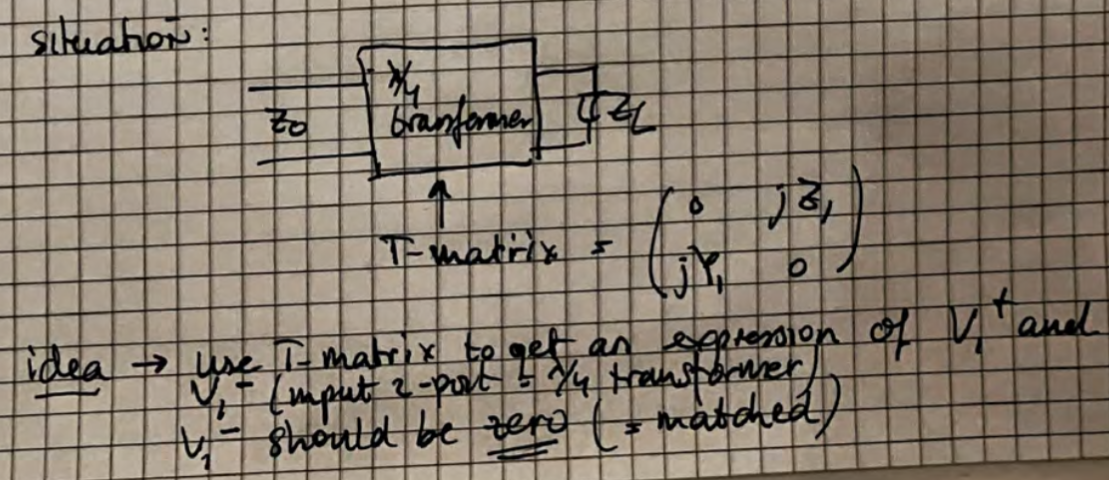 situation:
λ/4
Z0
transformer
ZL
T-matrix = ( 0 jZ1
jY1 0 )
idea → use T-matrix to get an expression of V1+ and
V1- (input 2-port = λ/4 transformer)
V1- should be zero (= matched)